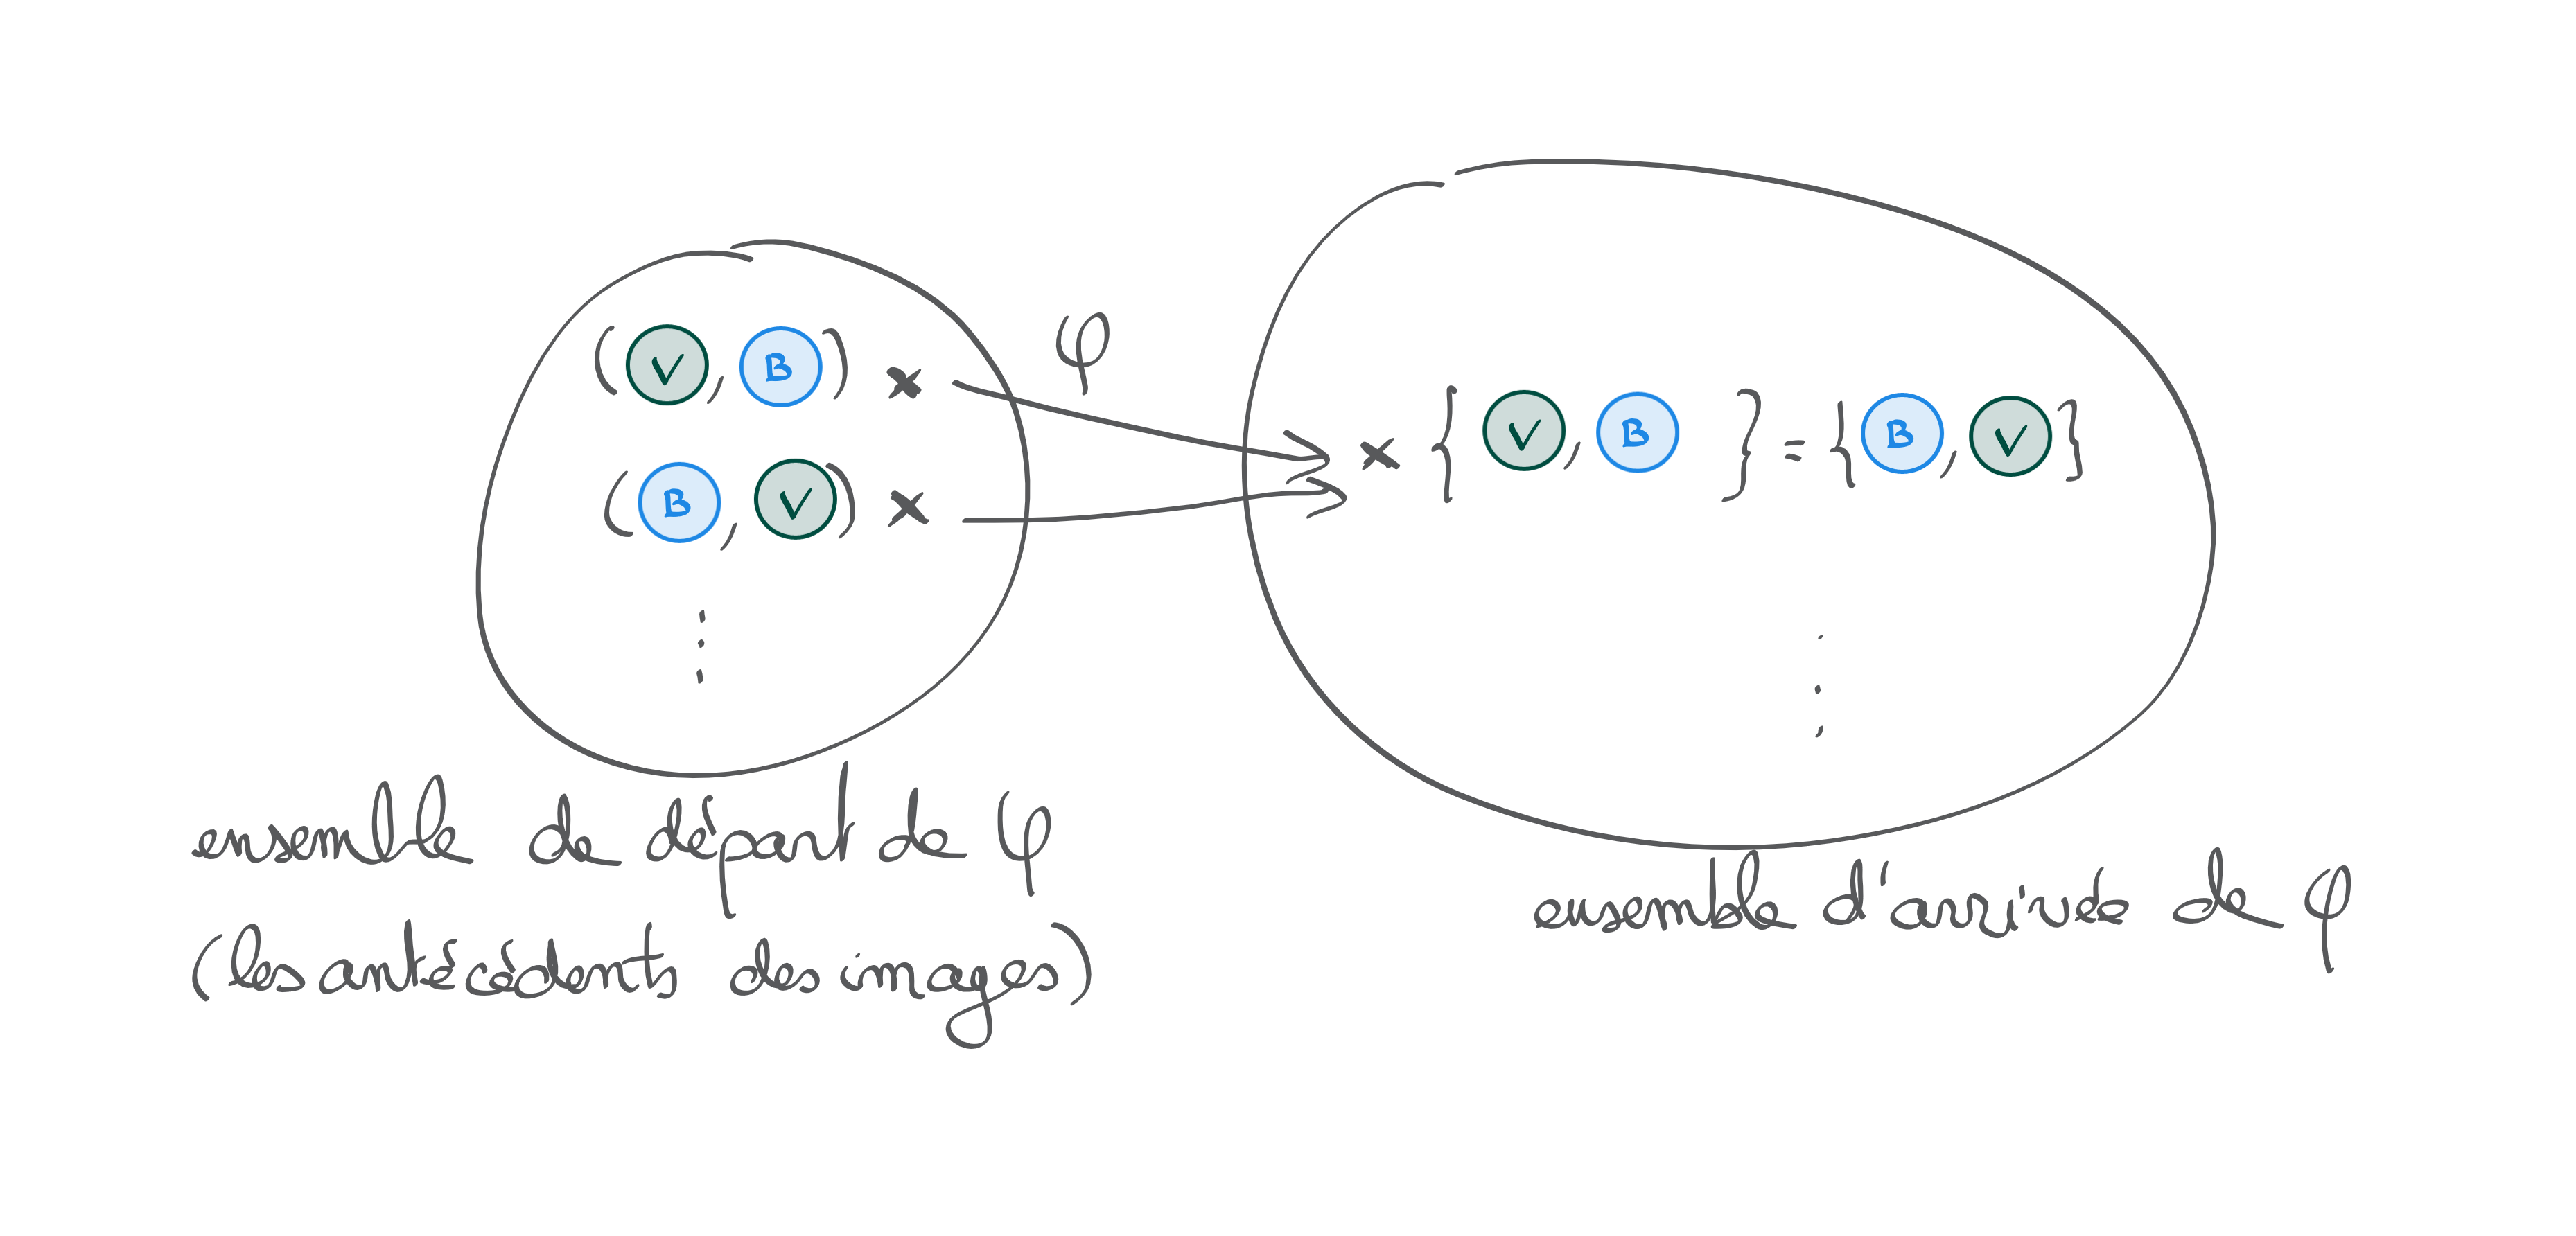 (V, B) ×
φ
(B, V) ×
× {V, B} = {B, V}
ensemble de départ de φ
(les antécédents des images)
ensemble d'arrivée de φ